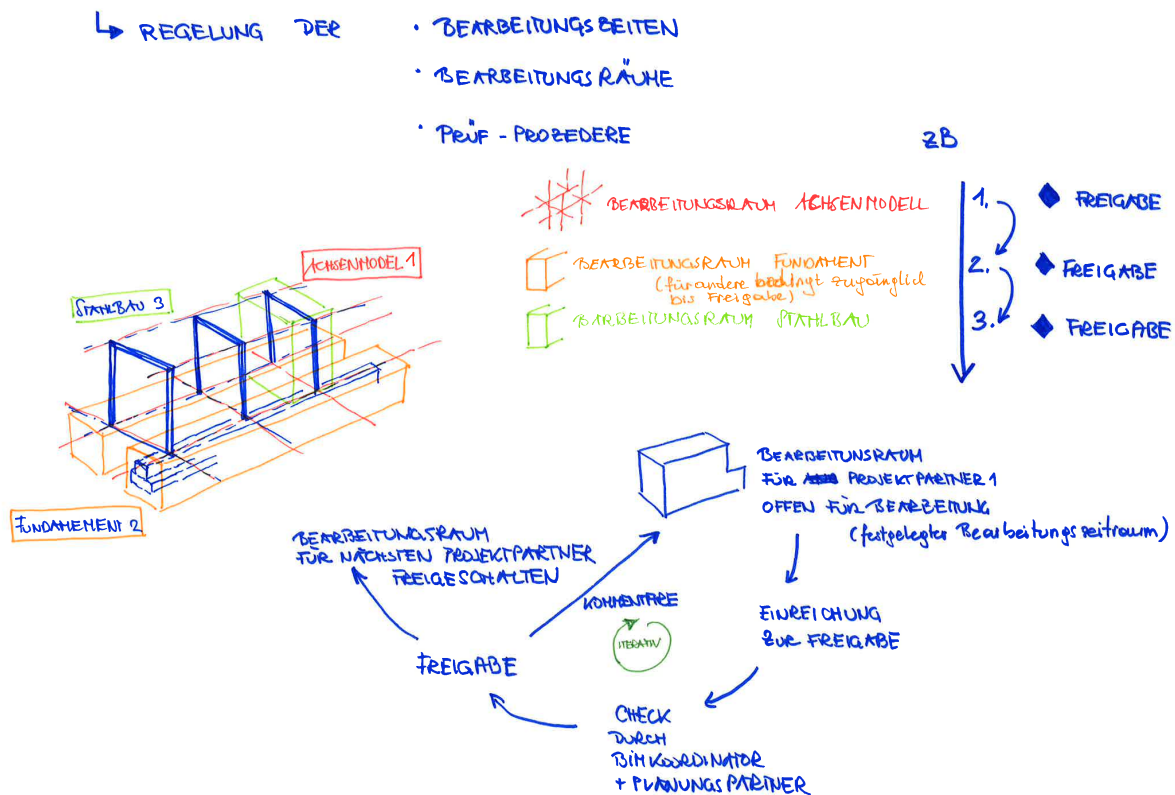 ↳ REGELUNG DER
· BEARBEITUNGSZEITEN
· BEARBEITUNGSRÄUME
· PRÜF - PROZEDERE
zB
BEARBEITUNGSRAUM ACHSENMODELL
BEARBEITUNGSRAUM FUNDAMENT
(für andere bedingt zugänglich
bis Freigabe)
BARBEITUNGSRAUM STAHLBAU
1. ◆ FREIGABE
2. ◆ FREIGABE
3. ◆ FREIGABE
ACHSENMODEL 1
STAHLBAU 3
FUNDAMEMENT 2
BEARBEITUNSRAUM
FÜR PROJEKTPARTNER 1
OFFEN FÜR BEARBEITUNG
(festgelegter Bearbeitungszeitraum)
EINREICHUNG
ZUR FREIGABE
CHECK
DURCH
BIM KOORDINATOR
+ PLANUNGSPARTNER
FREIGABE
KOMMENTARE
ITERATIV
BEARBEITUNGSRAUM
FÜR NÄCHSTEN PROJEKTPARTNER
FREIGESCHALTEN